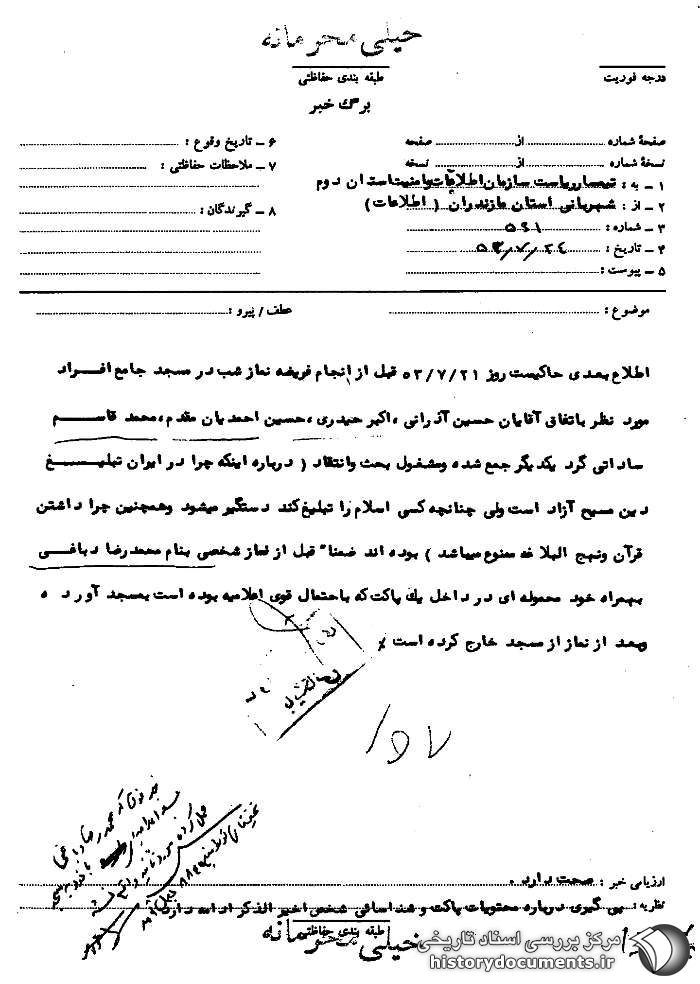 خیلی محرمانه
طبقه بندی حفاظتی
درجه فوریت
برگ خبر
صفحهٔ شماره ........ از ........ صفحه
نسخهٔ شماره ........ از ........ نسخه
۱ ـ به : تیمسار ریاست سازمان اطلاعات و امنیت استان دوم
۲ ـ از : شهربانی استان مازندران ( اطلاعات )
۳ ـ شماره : ۵۶۱
۴ ـ تاریخ : ۵۳/۷/۲۴
۵ ـ پیوست :
۶ ـ تاریخ وقوع :
۷ ـ ملاحظات حفاظتی :
۸ ـ گیرندگان :
موضوع :
عطف / پیرو :
اطلاع بعدی حاکیست روز ۵۳/۷/۲۱ قبل از انجام فریضه نماز شب در مسجد جامع افراد
مورد نظر باتفاق آقایان حسین آذرانی ، اکبر حیدری ، حسین احمدیان مقدم ، محمد قاسم
ساداتی گرد یکدیگر جمع شده ومشغول بحث وانتقاد ( درباره اینکه چرا در ایران تبلیغ
دین مسیح آزاد است ولی چنانچه کسی اسلام را تبلیغ کند دستگیر میشود وهمچنین چرا داشتن
قرآن ونهج البلاغه ممنوع میباشد ) بوده اند ضمنا" قبل از نماز شخصی بنام محمدرضا دباغی
بهمراه خود محموله ای در داخل یک پاکت که باحتمال قوی اعلامیه بوده است بمسجد آورده
وبعد از نماز از مسجد خارج کرده است ٪
۱۵۷
ارزیابی خبر : صحت دارد .
نظریه : پی گیری درباره محتویات پاکت و شناسائی شخص اخیر الذکر ادامه دارد
طبقه بندی حفاظتی
خیلی محرمانه
مرکز بررسی اسناد تاریخی
historydocuments.ir